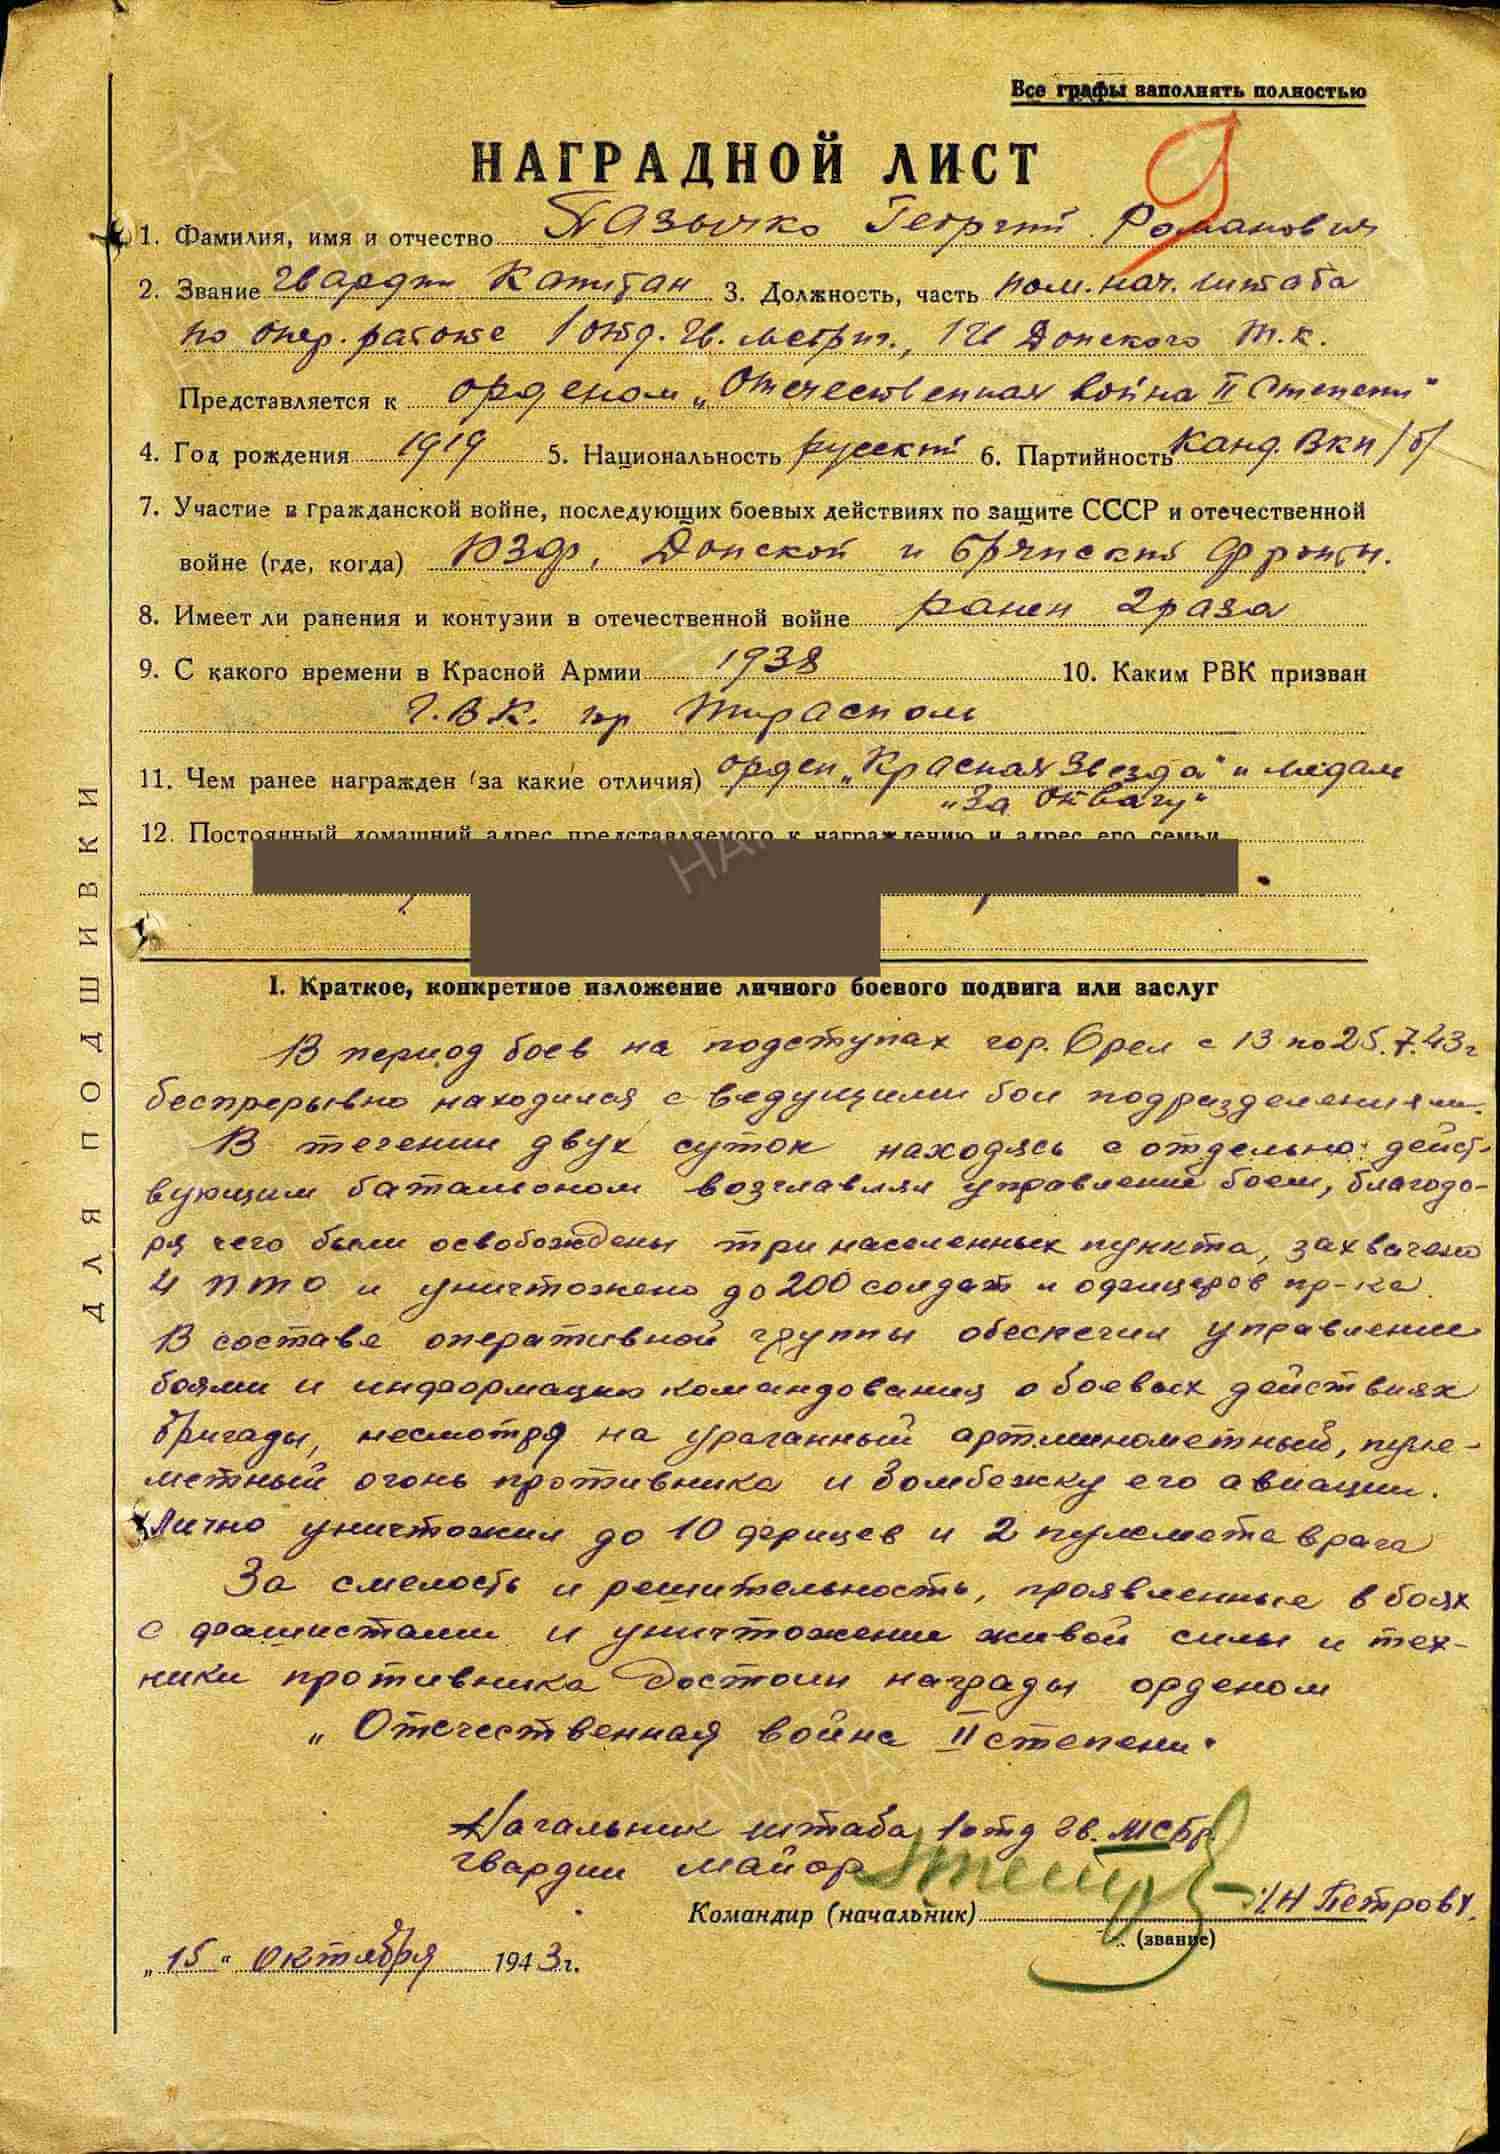 Все графы заполнять полностью
НАГРАДНОЙ ЛИСТ
1. Фамилия, имя и отчество Пазычко Георгий Романович
2. Звание Гвардии Капитан 3. Должность, часть пом. нач. штаба
по опер. работе 1 отд. Гв. мстрбр., 1 Гв Донского Т. К.
Представляется к орденом „Отечественная война II Степени"
4. Год рождения 1919 5. Национальность русский 6. Партийность Канд. ВКП/б/
7. Участие в гражданской войне, последующих боевых действиях по защите СССР и отечественной
войне (где, когда) ЮЗФ, Донской и Брянский фронты.
8. Имеет ли ранения и контузии в отечественной войне ранен 2 раза
9. С какого времени в Красной Армии 1938 10. Каким РВК призван
Г.В.К. гор Тирасполь
11. Чем ранее награжден (за какие отличия) орден „Красная Звезда" и медаль
„За Отвагу"
12. Постоянный домашний адрес представляемого к награждению и адрес его семьи
I. Краткое, конкретное изложение личного боевого подвига или заслуг
В период боев на подступах гор. Орел с 13 по 25.7.43г
беспрерывно находился с ведущими бои подразделениями.
В течении двух суток находясь с отдельно дейст-
вующим батальоном возглавлял управление боем, благодо-
ря чего были освобождены три населенных пункта, захвачено
4 ПТО и уничтожено до 200 солдат и офицеров пр-ка.
В составе оперативной группы обеспечил управление
боями и информацию командования о боевых действиях
бригады, несмотря на ураганный артминометный, пуле-
метный огонь противника и бомбежку его авиации.
Лично уничтожил до 10 фрицев и 2 пулемета врага
За смелость и решительность, проявленные в боях
с фашистами и уничтожение живой силы и тех-
ники противника достоин награды орденом
„Отечественная война II степени"
Начальник штаба 1 отд Гв. МСБр.
Гвардии майор
Командир (начальник) /Н Петров/.
(звание)
„15" октября 1943г.
ДЛЯ ПОДШИВКИ
ПАМЯТЬ НАРОДА